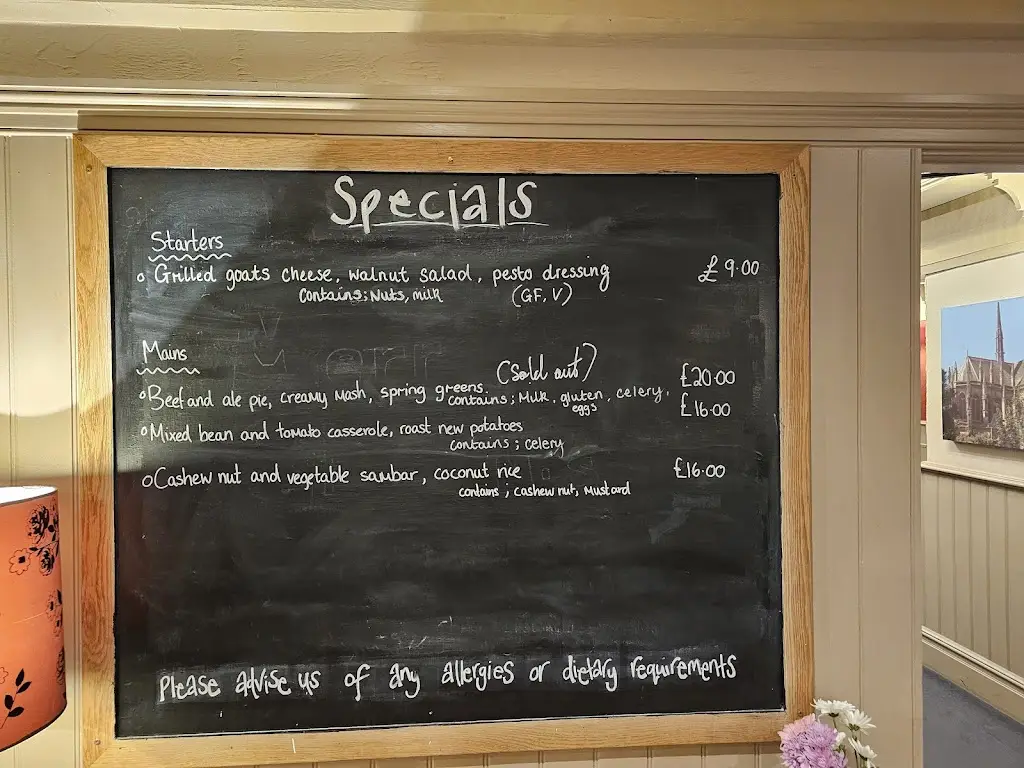 Specials
Starters
o Grilled goats cheese, walnut salad, pesto dressing £9.00
Contains; Nuts, milk (GF, V)
Mains
(Sold out)
o Beef and ale pie, creamy mash, spring greens. £20.00
contains; Milk, gluten, celery,
eggs
o Mixed bean and tomato casserole, roast new potatoes £16.00
contains; celery
o Cashew nut and vegetable sambar, coconut rice £16.00
contains; cashew nut, Mustard
Please advise us of any allergies or dietary requirements